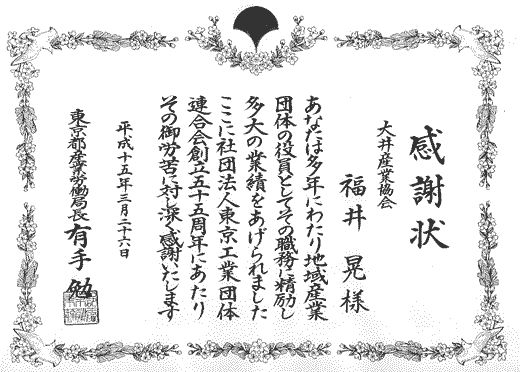 感謝状
大井産業協会
福井晃様
あなたは多年にわたり地域産業
団体の役員としてその職務に精励し
多大の業績をあげられました
ここに社団法人東京工業団体
連合会創立五十五周年にあたり
その御労苦に対し深く感謝いたします
平成十五年三月二十六日
東京都産業労働局長 有手勉